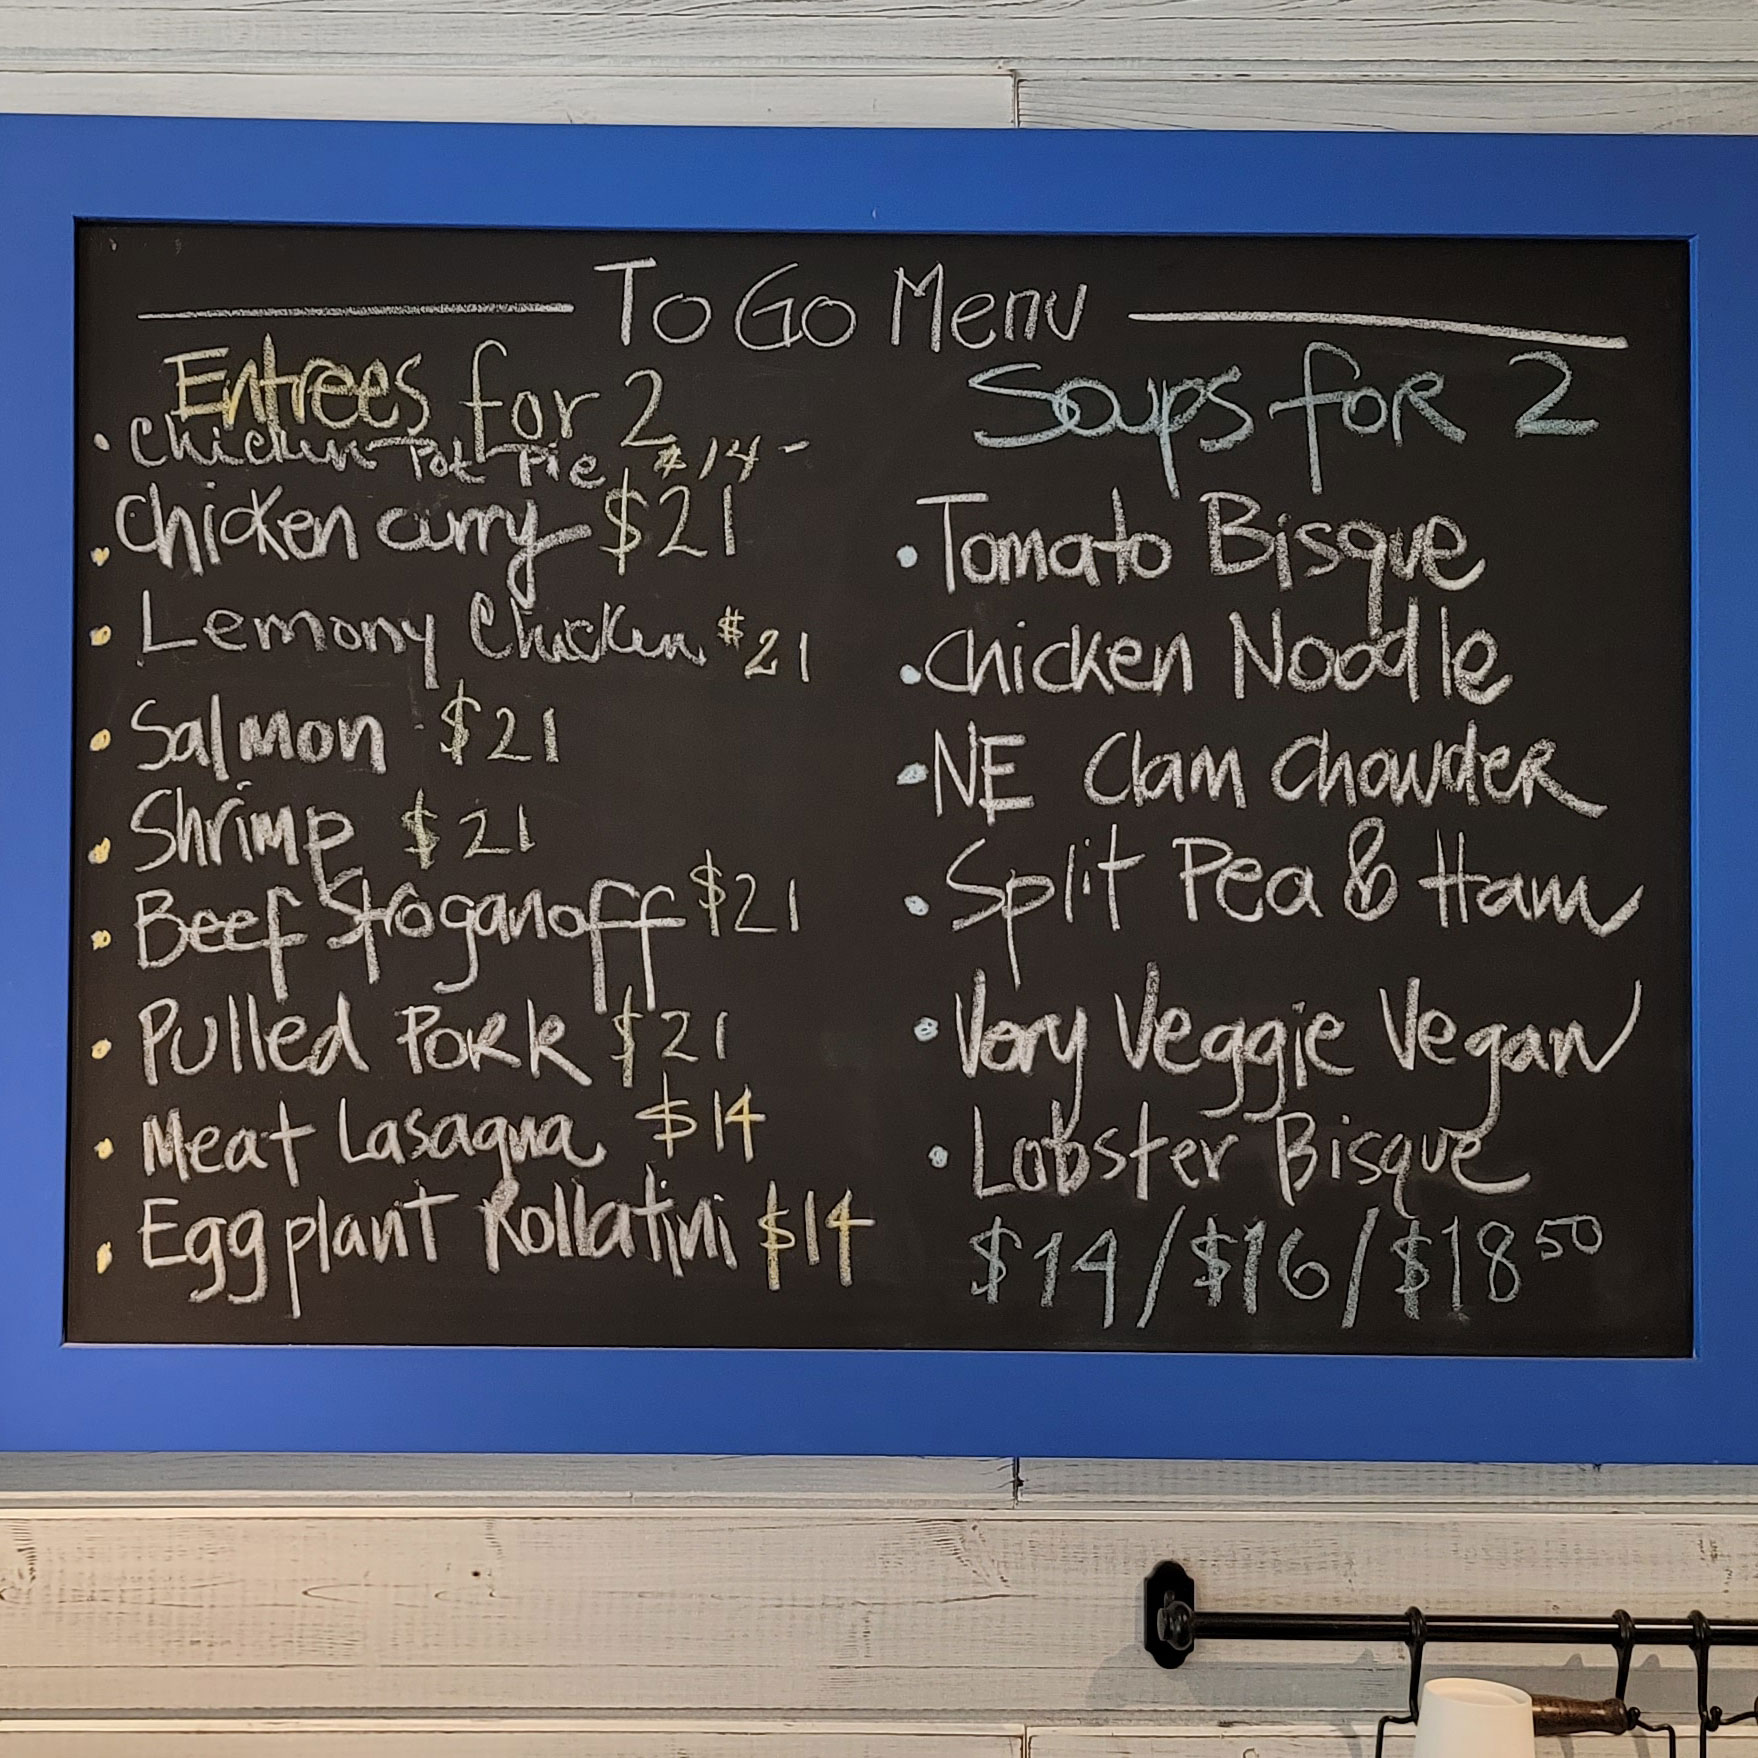 To Go Menu
Entrees for 2
• Chicken Pot Pie $14-
• Chicken curry $21
• Lemony Chicken $21
• Salmon $21
• Shrimp $21
• Beef Stroganoff $21
• Pulled Pork $21
• Meat Lasagna $14
• Eggplant Rollatini $14
Soups for 2
• Tomato Bisque
• Chicken Noodle
• NE Clam Chowder
• Split Pea & Ham
• Very Veggie Vegan
• Lobster Bisque
$14/$16/$18 50